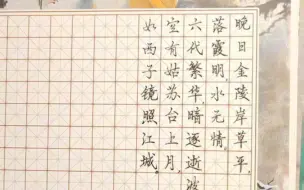 晚日金陵岸草平,
落霞明,水无情。
六代繁华,暗逐逝波
空有姑苏台上月,
如西子镜照江城。